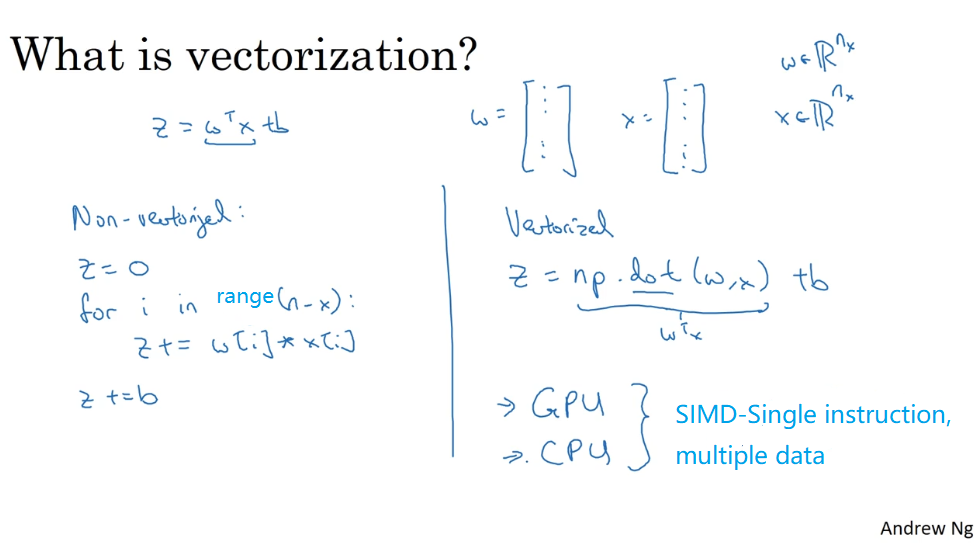 What is vectorization?
z = wᵀx + b
w = [⋮ ⋮] x = [⋮ ⋮]
w ∈ ℝⁿˣ
x ∈ ℝⁿˣ
Non-vectorized:
z = 0
for i in range(n-x):
z += w[i] * x[i]
z += b
Vectorized
z = np.dot(w,x) + b
wᵀx
→ GPU
→ CPU
SIMD-Single instruction,
multiple data
Andrew Ng